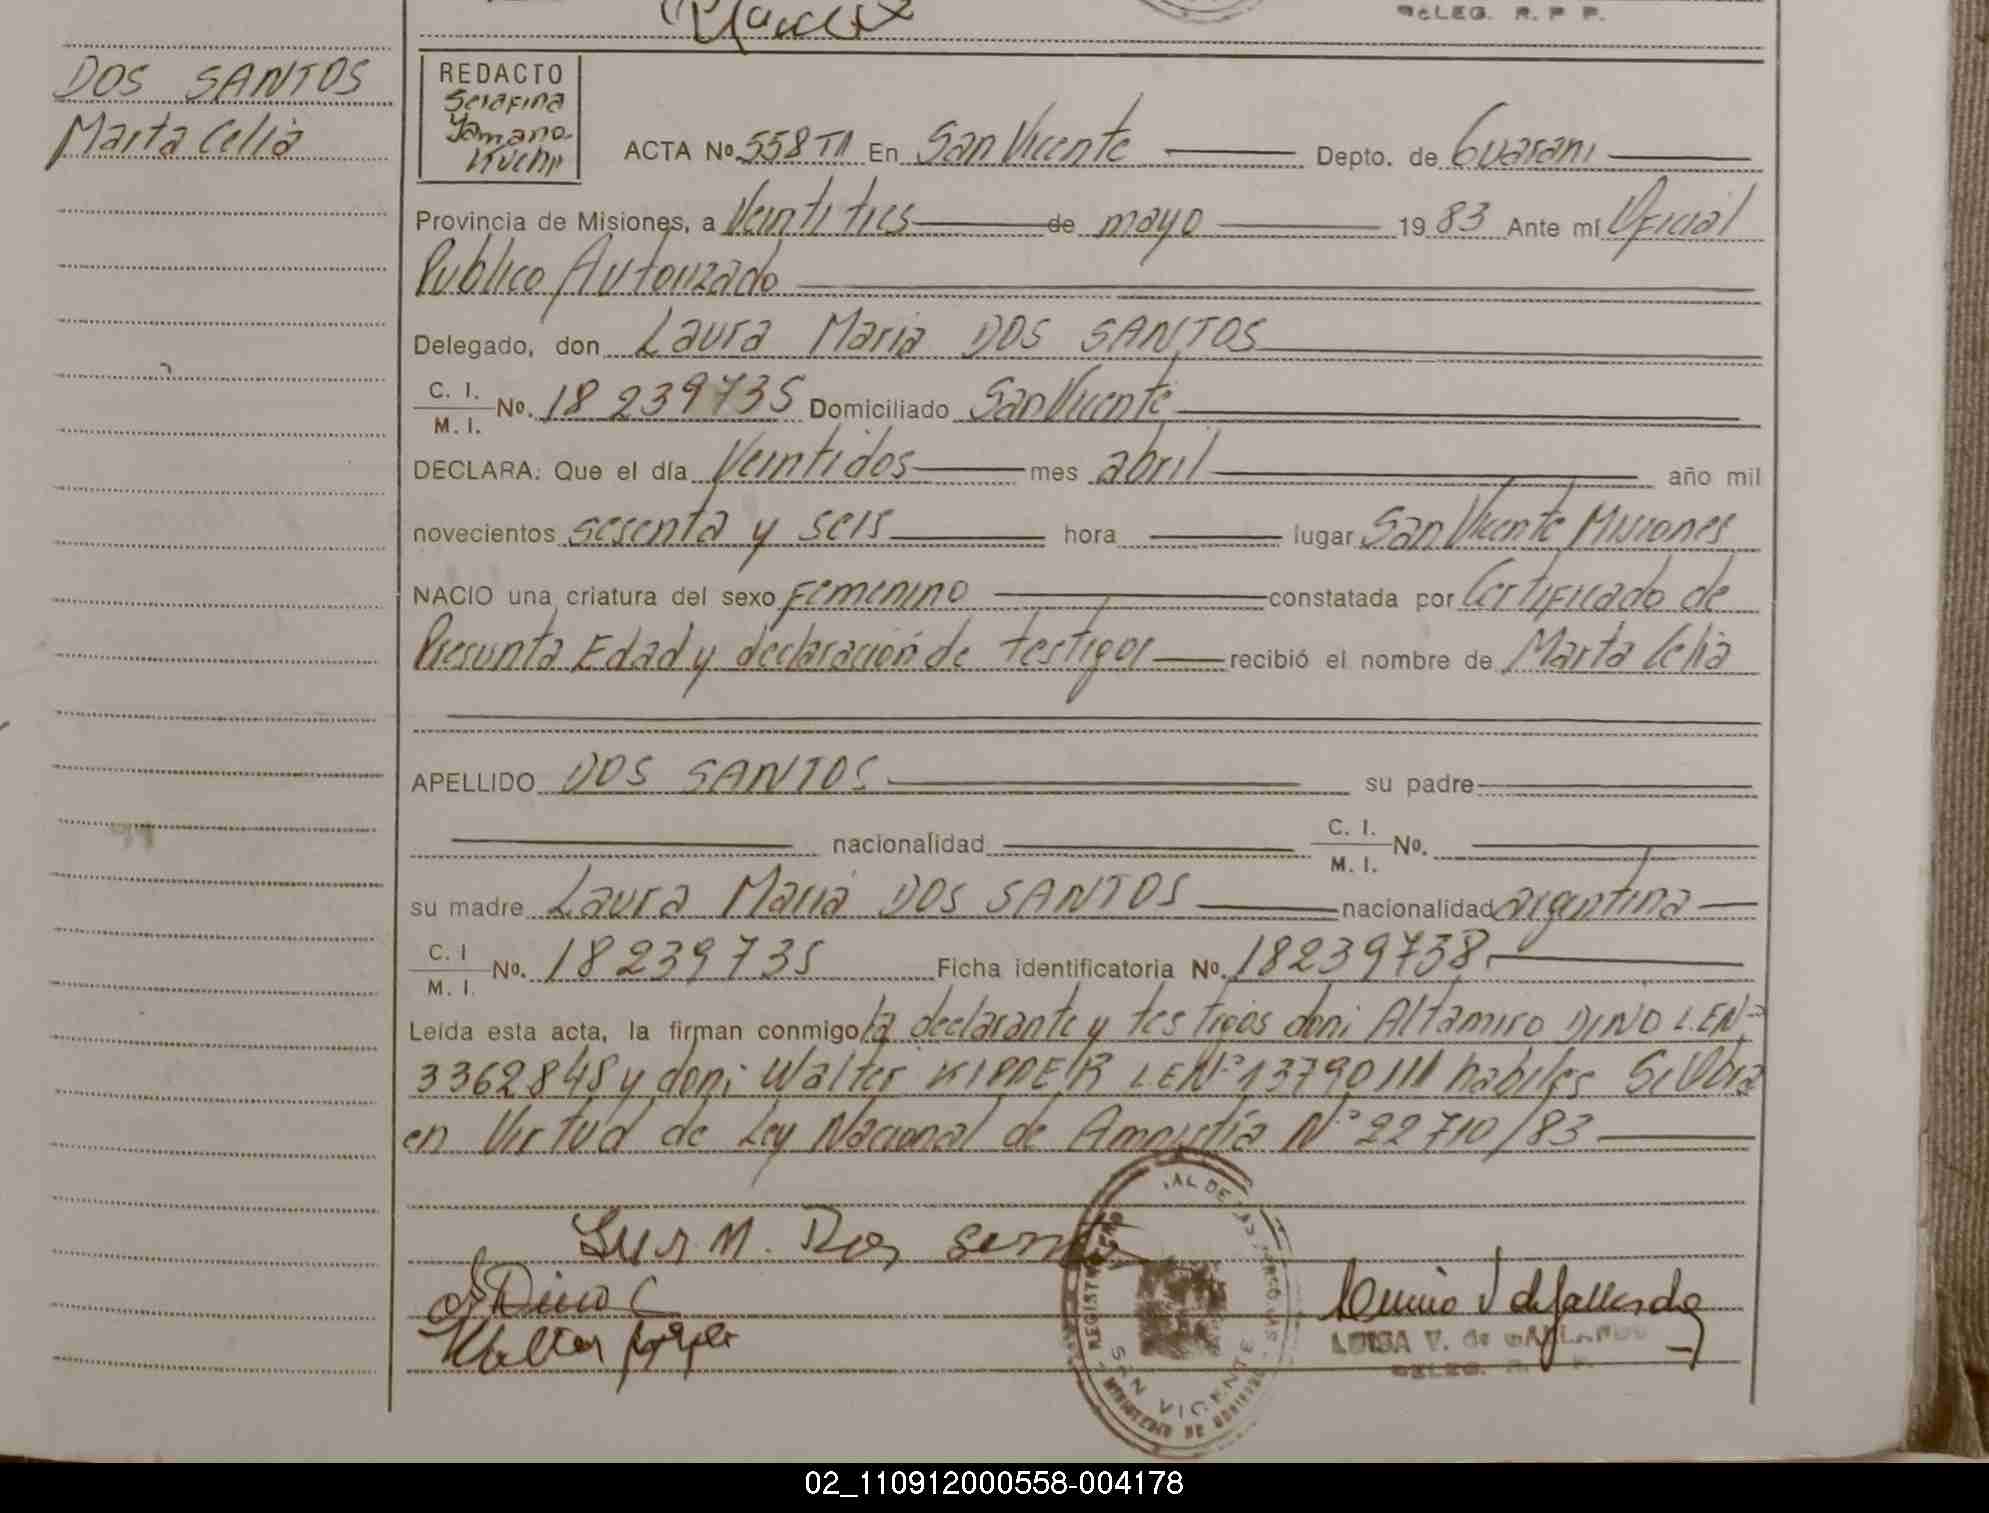 DELEG. R. P. P.
DOS SANTOS
Marta Celia
REDACTO
Serafina
ACTA No 558 TII En San Vicente Depto. de Guarani
Provincia de Misiones, a Veintitres de mayo 1983 Ante mí Oficial
Publico Autorizado
Delegado, don Laura Maria DOS SANTOS
C. I.
M. I. No. 18 239735 Domiciliado San Vicente
DECLARA: Que el día Veintidos mes abril año mil
novecientos sesenta y seis hora lugar San Vicente Misiones
NACIO una criatura del sexo Femenino constatada por Certificado de
Presunta Edad y declaración de testigos recibió el nombre de Marta Celia
APELLIDO DOS SANTOS su padre
nacionalidad C. I. M. I. No.
su madre Laura Maria DOS SANTOS nacionalidad argentina
C. I M. I. No. 18 239 735 Ficha identificatoria No. 18239738
Leída esta acta, la firman conmigo la declarante y testigos don: Altamiro DINO L.E.Nº
3362848 y don: Walter KIPPER L.E.Nº 13790111 habiles Se Obra
en Virtud de Ley Nacional de Amnistia Nº 22710/83
Walter
LUISA V. de GALLARDO
DELEG. R. P.
SAN VICENTE
02_110912000558-004178